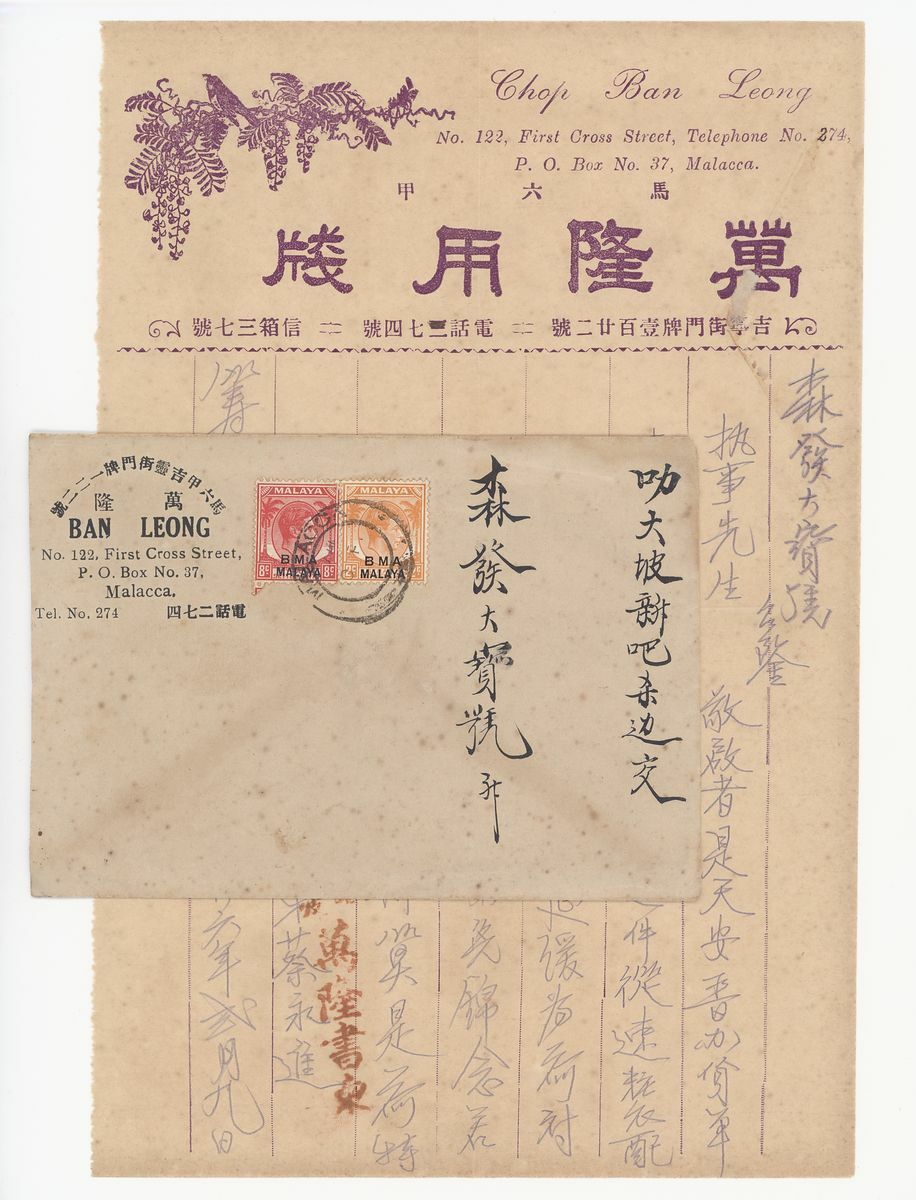 Chop Ban Leong
No. 122, First Cross Street, Telephone No. 274,
P. O. Box No. 37, Malacca.
馬六甲
萬隆用牋
吉寧街門牌壹百廿二號 電話二七四號 信箱三七號
森發大寶號
台鑒
执事先生 敬啟者是天安晋办貨单
件從速裝配
延缓为荷
錦念若
是荷特
蔡永進
萬隆書柬
六年弍月九日
馬六甲吉靈街門牌一二二號
萬隆
BAN LEONG
No. 122, First Cross Street,
P. O. Box No. 37,
Malacca.
Tel. No. 274 電話二七四
MALAYA
BMA
MALAYA
8c 8c
MALAYA
BMA
MALAYA
2c
叻大坡新吧杀边交
森發大寶號